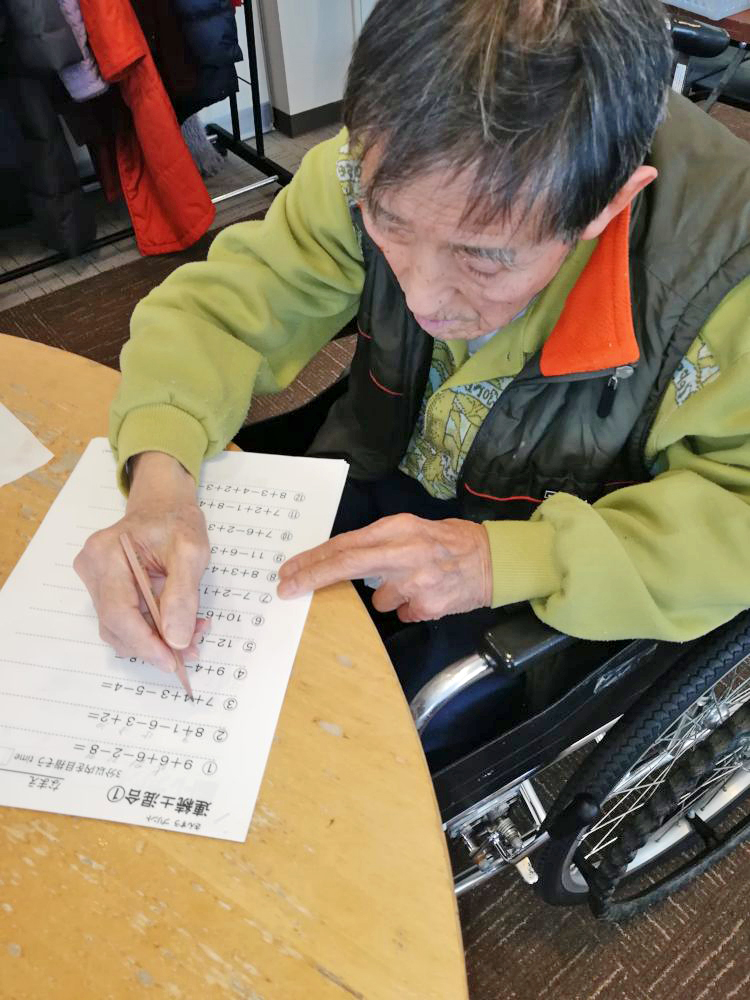 さんすう プリント
連続±混合①
なまえ
3分以内を目指そう time
① 9+6+6−2−8=
② 8+1−6−3+2=
③ 7+4+3−5−4=
④ 9+4−
⑤ 12−6
⑥ 10+6−
⑦ 7−2+1
⑧ 8+3+4
⑨ 11−6+3
⑩ 7+6−2+3
⑪ 7+2+1−8+4
⑫ 8+3−4+2+3